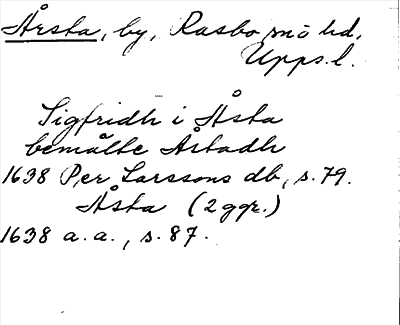 Årsta, by, Rasbo sn o hd,
Upps.l.
Sigfridh i Åsta
bemälte Åstadh
1638 Per Larssons db, s. 79.
Åsta (2 ggr.)
1638 a. a., s. 87.